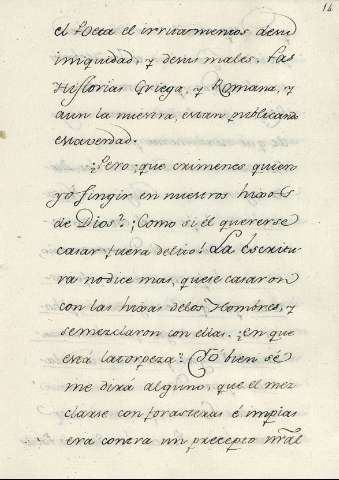 14
el Poeta el irritamentos desu
iniquidad, y desus males. Las
Historias Griega, y Romana, y
aun la nuestra, estan publicando
estaverdad.
¿Pero; que crimenes quiero
yó fingir en nuestros hixos
de Dios? ¡Como si él quererse
casar fuera delito! La Escritu-
ra nodice mas, quese casaron
con las hixas delos Hombres, y
semezclaron con ellas. ¿En que
está latorpeza? Yó bien sé
me dirá alguno, que el mez
clarse con forasteras é impias
era contra un precepto